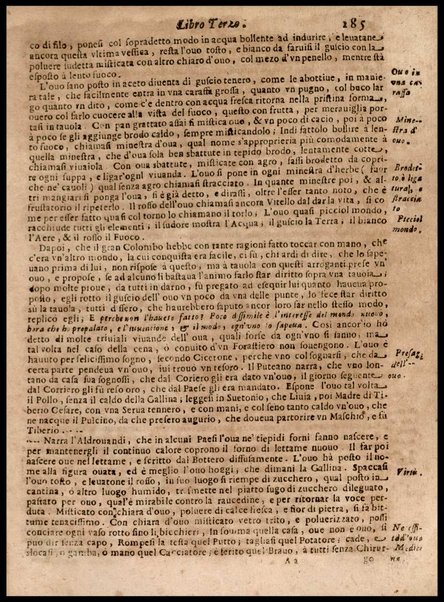 Libro Terzo. 185
co di filo, ponesi col sopradetto modo in acqua bollente ad indurire, e leuatane
ancora questa vltima vessica, resta l'ouo tosto, e bianco da saruisi il guscio con la
poluere sudetta misticata con altro chiaro d'ouo, col mezo d'vn penello, mentre stà
esposto à lento fuoco.
L'ouo sano posto in aceto diuenta di guscio tenero, come le abottiue, in manie-
ra tale, che facilmente entra in vna caraffa grossa, quanto vn pugno, col buco lar
go quanto vn dito, come c'è dentro con acqua fresca ritorna nella pristina forma,
ouero col farlo cuocere alla vista del fuoco, questo con frutta, per merauiglia por-
tasi in tauola. Con pan grattato assai si mistica oue, & vn poco di cacio, poi à poco
à poco se gli aggiunge brodo caldo, sempre misticando; Indi fattolo bullire à len-
to fuoco, chiamasi minestra d'oua, qual nome s'appropriera più comodamente à
quella minestra, che d'oua sole ben sbattute in tepido brodo, lentamente cotte
chiamasi viuaiola. Con oua sbattute, misticate con agro, fassi brodetto da copri-
re ogni suppa, e ligar'ogni viuanda. L'ouo si pone in ogni minestra d'herbe (fuor
che ne' cauoli) qual senza agro chiamasi stracciato. In quante minestre poi, & al-
tri mangiari si ponga l'oua, si è già detto, e dirassi, oltre l'esser tanto noto, che è
frustatorio il ripeterlo. Il rosso dell'ouo chiamasi ancora Vitello dal dar la vita, si co
me per esser fatto quasi col torno lo chiamano il torlo. L'ouo quasi picciol mondo,
racchiude tutti gli elementi, il sudore mostra l'Acqua; il guscio la Terra; il bianco
l'Aere, & il rosso il Fuoco.
Dapoi, che il gran Colombo hebbe con tante ragioni fatto toccar con mano, che
c'era vn'altro mondo, la cui conquista era facile, ci fù, chi ardì di dire, che lo sape-
uano prima di lui, non rispose à questo, ma à tauola con questi arroganti prese vn'
ouo, e propose, se ad alcuno li bastaua l'animo farlo star diritto sopra vna tauola;
dopo molte proue, da tutti in darno, fù pregato ad esequir lui quanto haueua pro-
posto, egli rotto il guscio dell'ouo vn poco da vna delle punte, lo fece star diritto
sù la tauola, tutti dissero, che haurebbero saputo ancor loro far nello stesso modo,
replicò egli; E perche non l'hauete fatto? Poco dissimile è l'interesse del mondo nuouo,
hora che hò propalato, e l'inuentione, & il modo; ogn'vno lo sapeua. Così ancor'io hò
detto di molte triuiali viuande dell'oua, quali forse da ogn'vno si fanno, ma
tal volta nel caso della cena, ò conuito d'vn Forastiero non souengono. L'ouo è
hauuto per felicissimo sogno, secondo Cicerone, perche vno col sognarsi, che da
certa parte pendeua vn'ouo, iui trouò vn tesoro. Il Puteano narra, che vno lon-
tano da casa sua sognossi, che dal Coriero gli era dato vn'ouo, il giorno seguente
dal Corriero gli fù reso oro, che dal Paese gli era mandato. Espone l'ouo tal volta
il Pollo, senza il caldo della Gallina; leggesi in Suetonio, che Liuia, poi Madre di Ti-
berio Cesare, con vna Serua tennero, e con mani, e col seno tanto caldo vn'ouo, che
ne nacque il Pulcino, da che presero augurio, che doueua partorire vn Maschio, e fù
Tiberio.
Narra l'Aldrouandi, che in alcuni Paesi l'oua ne' tiepidi forni fanno nascere, e
per mantenergli il continuo calore coprono il forno di lettame nuouo. Il far poi
nascere oue nel lettame, è scritto dal Bottero diffusamente. L'ouo hà posto il no-
me alla figura ouata, ed è meglio l'ouo hoggi, che dimani la Gallina. Spaccasi
l'ouo tosto, e leuatone il rosso, in suo luogo si riempe di zucchero, qual posto in
cantina, ò altro luogo humido, trasmette nel piatto sugo di zucchero dileguato,
passato per ouo, qual'è mirabile contro la raucedine, e per ritornar la voce per-
duta. Misticato con chiara d'ouo, poluere di calce fiesca, e fior di pietra, si fà bit-
tume tenacissimo. Con chiara d'ouo misticato vetro trito, e poluerizzato, possi
conciare ogni vaso rotto sino li bicchieri, In somma cuoce quel Cuoco, e scottasi,
ouo per terza capo, Rompesi la testa quel Putto; tagliasi quel Potatore; cade, e
slocasi, ò gamba, ò mano quel Cacciatore; è ferito quel Brauo, à tutti senza Chirur-
Aa go
Ouo in
vna ca-
raffa
Mine-
stra d'
ouo.
Brodet-
to, ò lega
tura, e
stracciato
Picciol
mondo.
Presag.
dell'
ouo.
Virtù.
Necessi-
tà d'ouo
Medice
na.